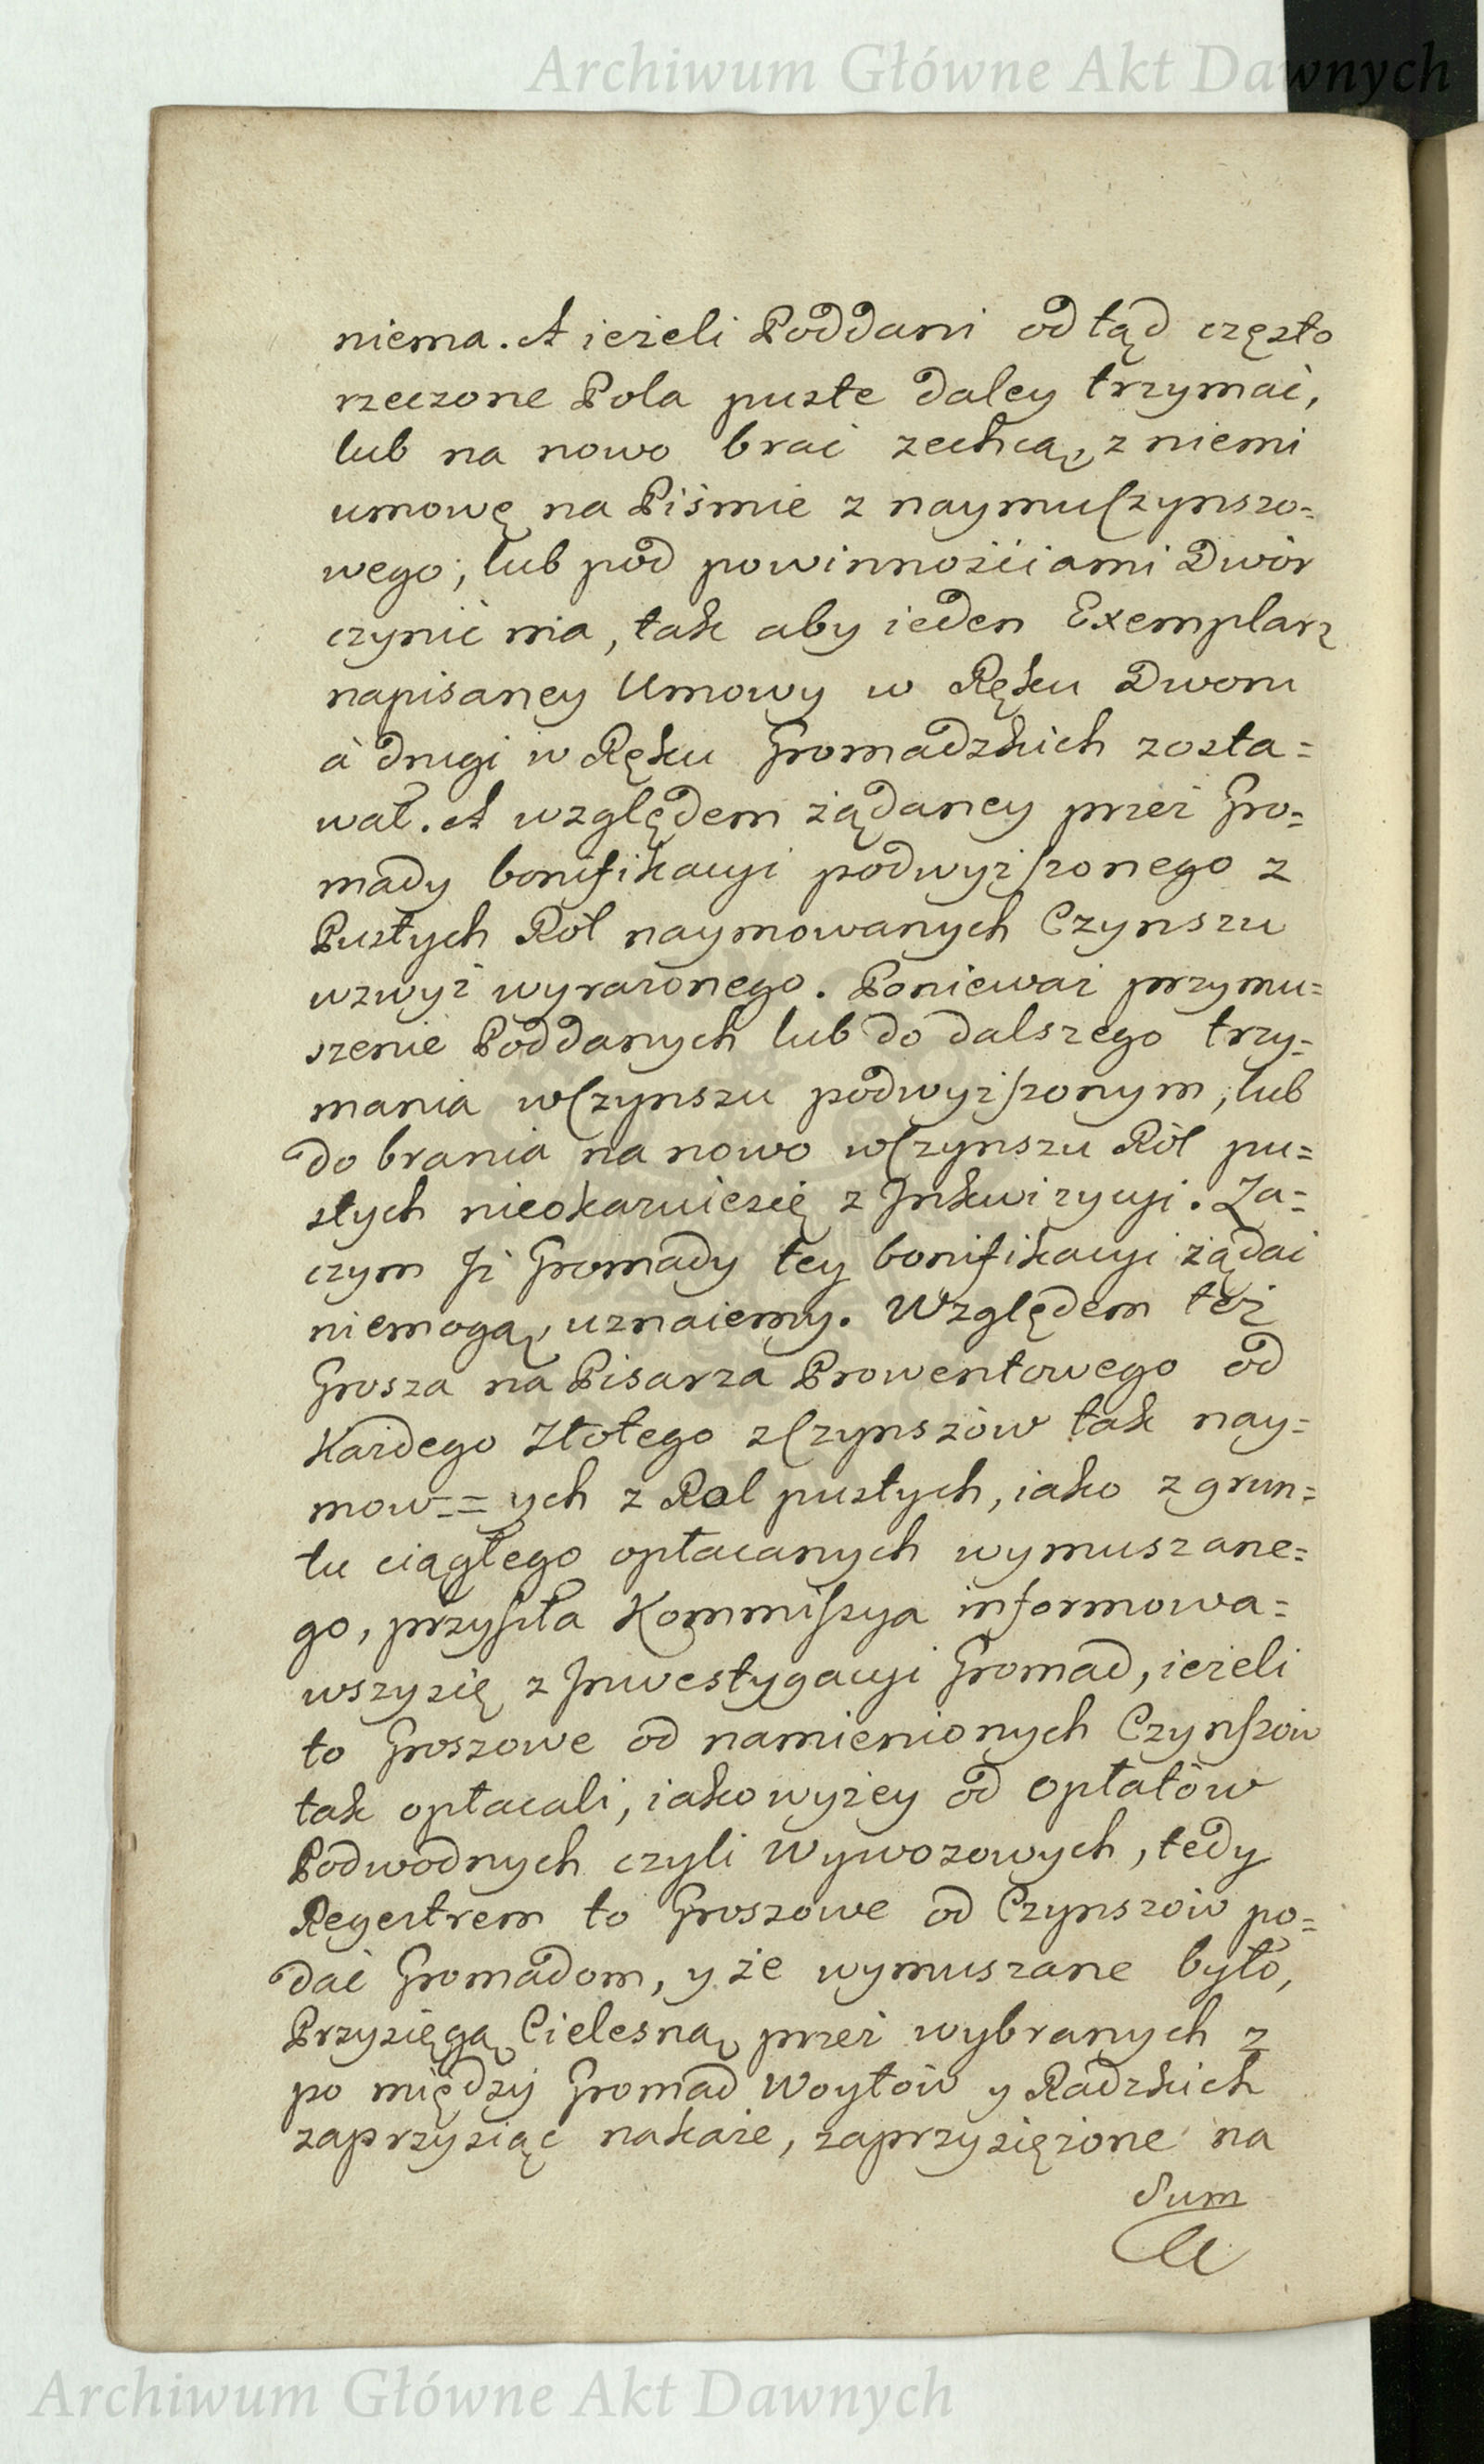 Archiwum Główne Akt Dawnych
niema. A ieżeli Poddani odtąd często
rzeczone Pola puste daley trzymać,
lub na nowo brać zechcą, z niemi
umowę na Piśmie z naymu Czynszo=
wego, lub pod powinnościami Dwór
czynić ma, tak aby ieden Exemplarz
napisaney Umowy w Ręku Dworu
à drugi w Ręku Gromadzkich zosta=
wał. A względem żądaney przez Gro=
mady bonifikacyi podwyższonego z
Pustych Ról naymowanych Czynszu
wzwyż wyrażonego. Ponieważ przymu=
szenie Poddanych lub do dalszego trzy=
mania w Czynszu podwyższonym, lub
do brania na nowo w Czynszu Ról pu=
stych nieokazuiesię z Inkwizycyi. Za=
czym Iż Gromady tey bonifikacyi żądać
niemogą, uznaiemy. Względem też
Grosza na Pisarza Prowentowego od
Każdego Złotego z Czynszów tak nay=
mow== ych z Rol pustych, iako z grun=
tu ciągłego opłacanych wymuszane=
go, przyszła Kommissya informowa=
wszysię z Inwestygacyi Gromad, ieżeli
to Groszowe od namienionych Czynszów
tak opłacali, iako wyżey od Opłatów
Podwodnych czyli Wywozowych, tedy
Regestrem to Groszowe od Czynszów po=
dać Gromadom, y że wymuszane było,
Przysięgą Cielesną przez wybranych z
po między Gromad Woytów y Radzkich
zaprzysiąc nakaże, zaprzysiężone na
Sum
Archiwum Główne Akt Dawnych